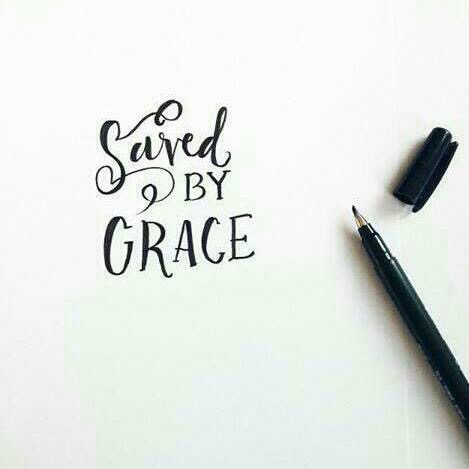 Saved
BY
GRACE